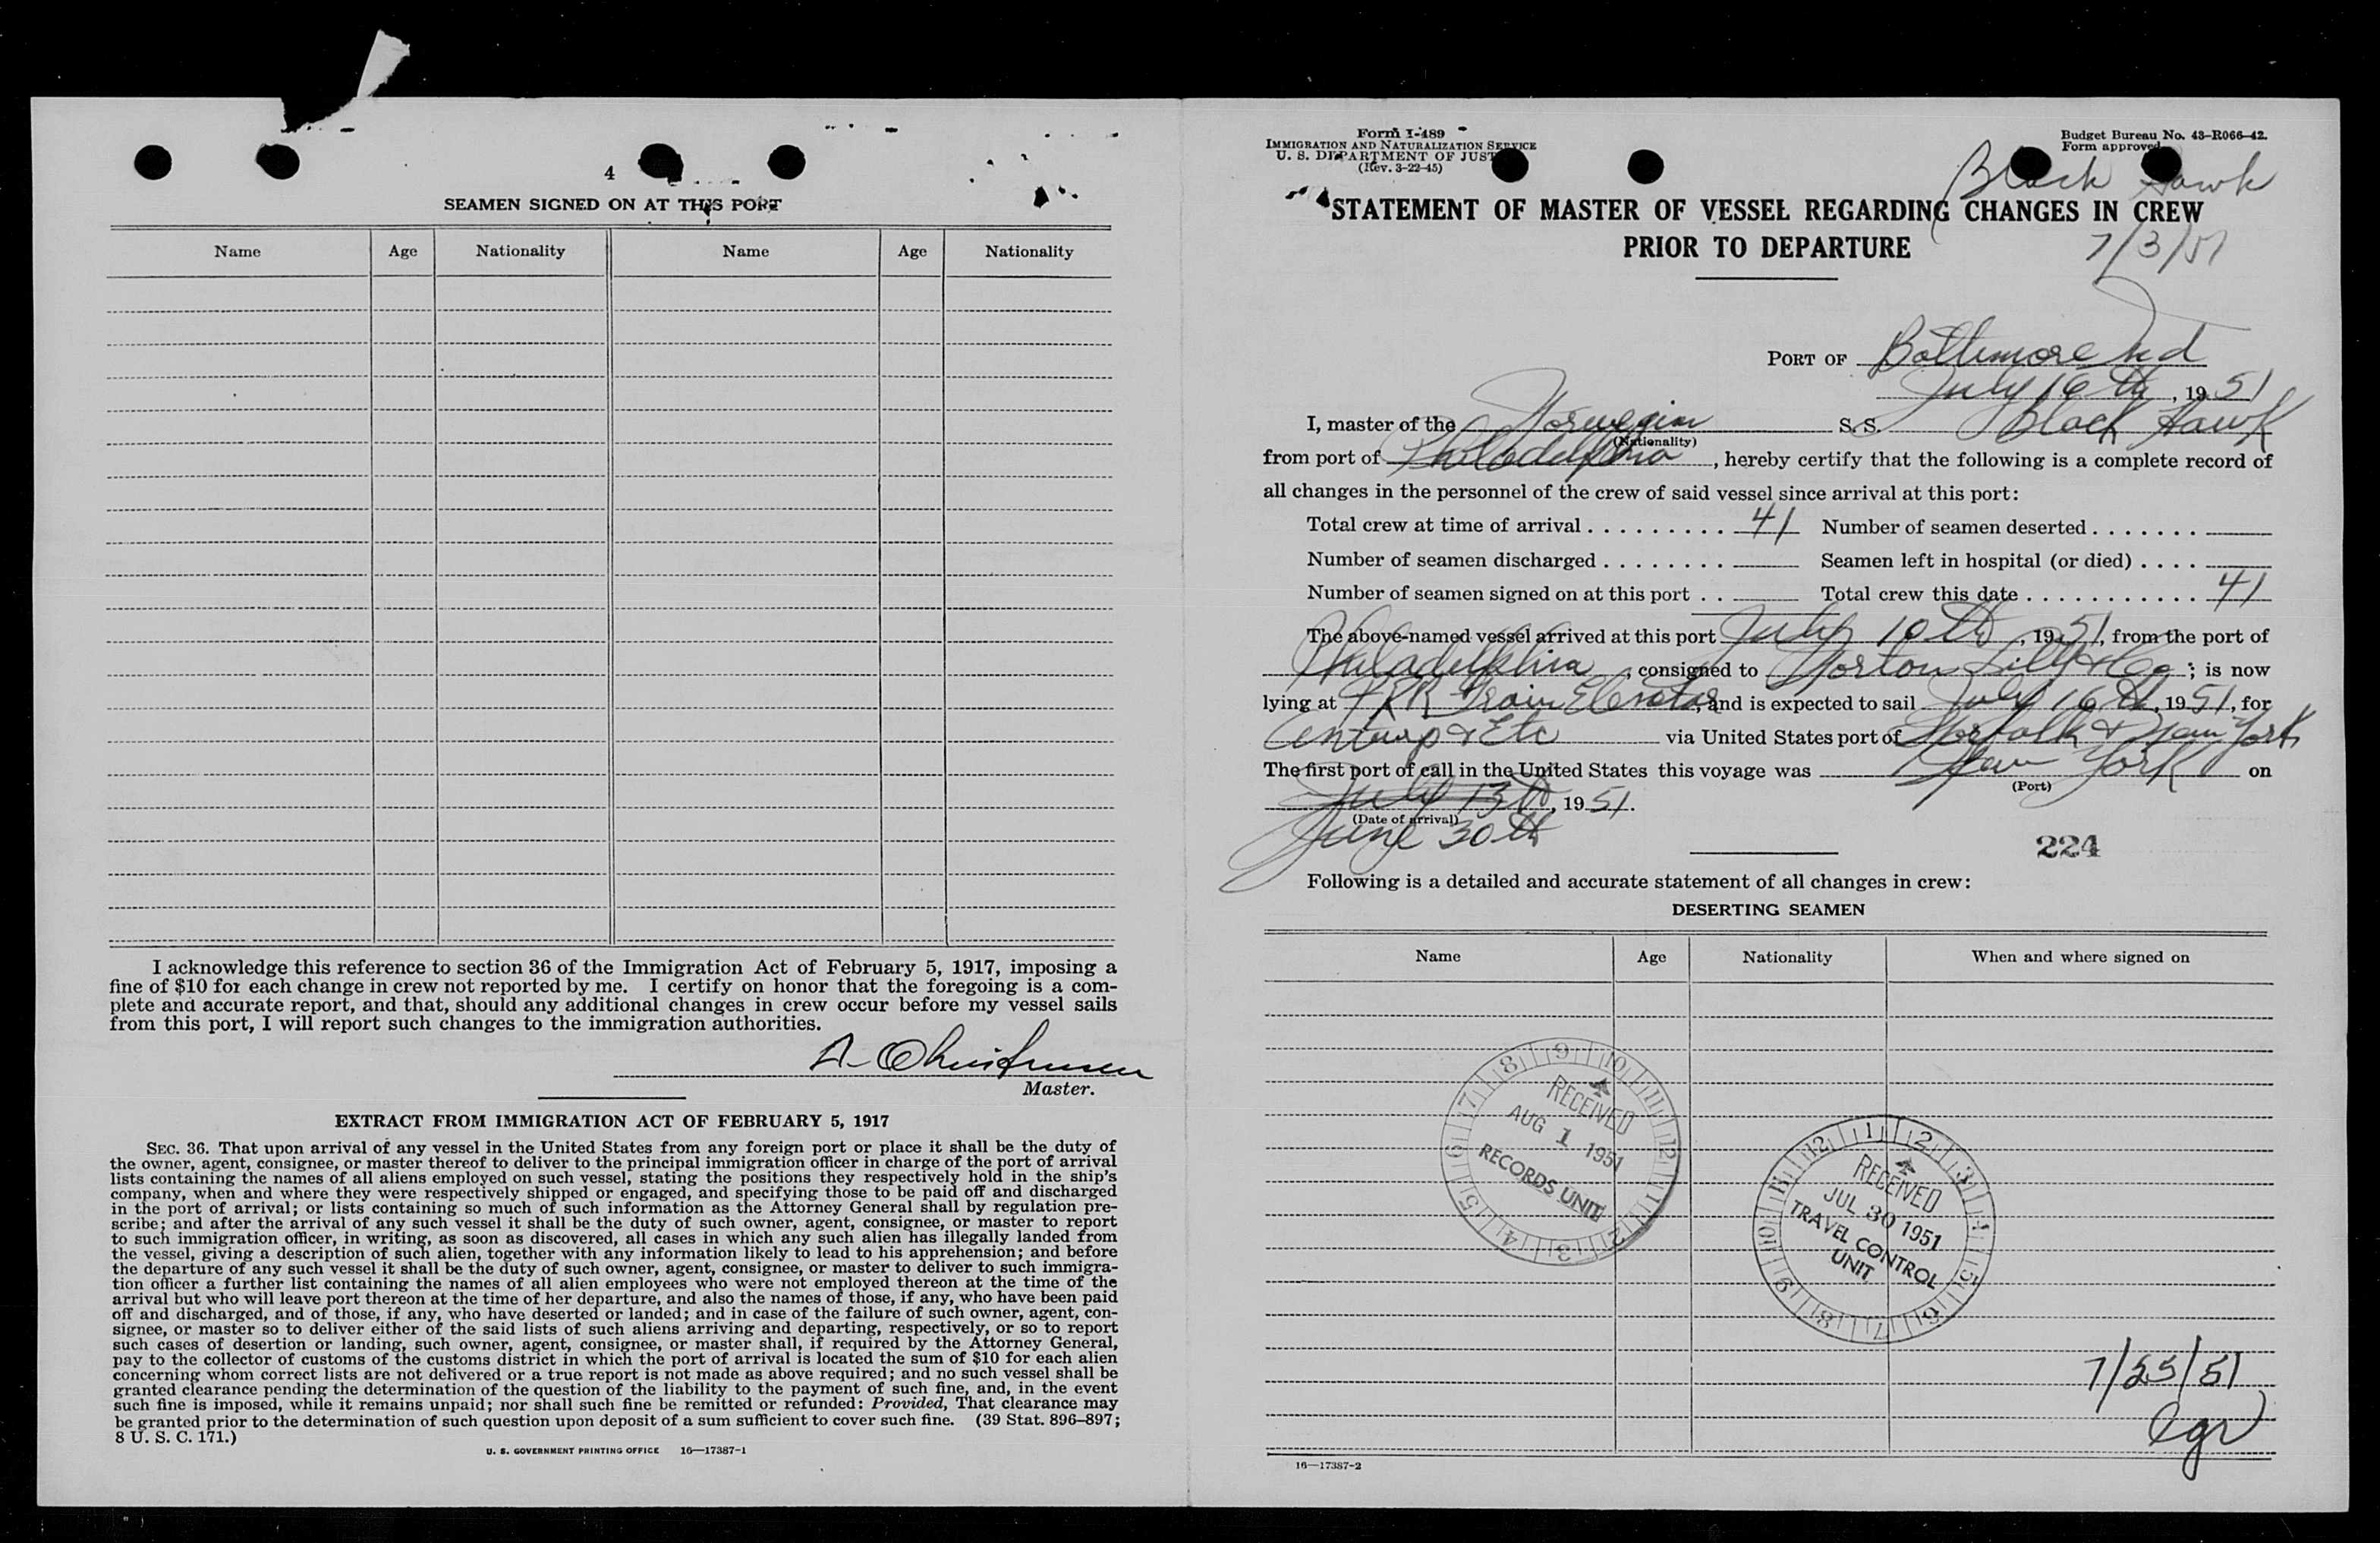 4
SEAMEN SIGNED ON AT THIS PORT
Name Age Nationality Name Age Nationality
I acknowledge this reference to section 36 of the Immigration Act of February 5, 1917, imposing a
fine of $10 for each change in crew not reported by me. I certify on honor that the foregoing is a com-
plete and accurate report, and that, should any additional changes in crew occur before my vessel sails
from this port, I will report such changes to the immigration authorities.
A. Christensen
Master.
EXTRACT FROM IMMIGRATION ACT OF FEBRUARY 5, 1917
SEC. 36. That upon arrival of any vessel in the United States from any foreign port or place it shall be the duty of
the owner, agent, consignee, or master thereof to deliver to the principal immigration officer in charge of the port of arrival
lists containing the names of all aliens employed on such vessel, stating the positions they respectively hold in the ship's
company, when and where they were respectively shipped or engaged, and specifying those to be paid off and discharged
in the port of arrival; or lists containing so much of such information as the Attorney General shall by regulation pre-
scribe; and after the arrival of any such vessel it shall be the duty of such owner, agent, consignee, or master to report
to such immigration officer, in writing, as soon as discovered, all cases in which any such alien has illegally landed from
the vessel, giving a description of such alien, together with any information likely to lead to his apprehension; and before
the departure of any such vessel it shall be the duty of such owner, agent, consignee, or master to deliver to such immigra-
tion officer a further list containing the names of all alien employees who were not employed thereon at the time of the
arrival but who will leave port thereon at the time of her departure, and also the names of those, if any, who have been paid
off and discharged, and of those, if any, who have deserted or landed; and in case of the failure of such owner, agent, con-
signee, or master so to deliver either of the said lists of such aliens arriving and departing, respectively, or so to report
such cases of desertion or landing, such owner, agent, consignee, or master shall, if required by the Attorney General,
pay to the collector of customs of the customs district in which the port of arrival is located the sum of $10 for each alien
concerning whom correct lists are not delivered or a true report is not made as above required; and no such vessel shall be
granted clearance pending the determination of the question of the liability to the payment of such fine, and, in the event
such fine is imposed, while it remains unpaid; nor shall such fine be remitted or refunded: Provided, That clearance may
be granted prior to the determination of such question upon deposit of a sum sufficient to cover such fine. (39 Stat. 896–897;
8 U. S. C. 171.)
U. S. GOVERNMENT PRINTING OFFICE 16—17387-1
Form I-489
IMMIGRATION AND NATURALIZATION SERVICE
U. S. DEPARTMENT OF JUST
(Rev. 3-22-45)
Budget Bureau No. 43-R066-42.
Form approved
Black Hawk
STATEMENT OF MASTER OF VESSEL REGARDING CHANGES IN CREW
PRIOR TO DEPARTURE
7/3/51
PORT OF Baltimore Md
July 16th, 1951
I, master of the Norwegian S. S. Black Hawk
(Nationality)
from port of Philadelphia, hereby certify that the following is a complete record of
all changes in the personnel of the crew of said vessel since arrival at this port:
Total crew at time of arrival 41 Number of seamen deserted
Number of seamen discharged Seamen left in hospital (or died)
Number of seamen signed on at this port Total crew this date 41
The above-named vessel arrived at this port July 10th, 1951, from the port of
Philadelphia, consigned to Norton Lilly & Co; is now
lying at PRR Grain Elevator, and is expected to sail July 16th, 1951, for
Antwrp & Etc via United States port of Norfolk & New York
The first port of call in the United States this voyage was New York on
(Port)
July 13th, 1951.
(Date of arrival)
June 30th
224
Following is a detailed and accurate statement of all changes in crew:
DESERTING SEAMEN
Name Age Nationality When and where signed on
RECEIVED
AUG 1 1951
RECORDS UNIT
RECEIVED
JUL 30 1951
TRAVEL CONTROL
UNIT
7/25/51
16—17387-2